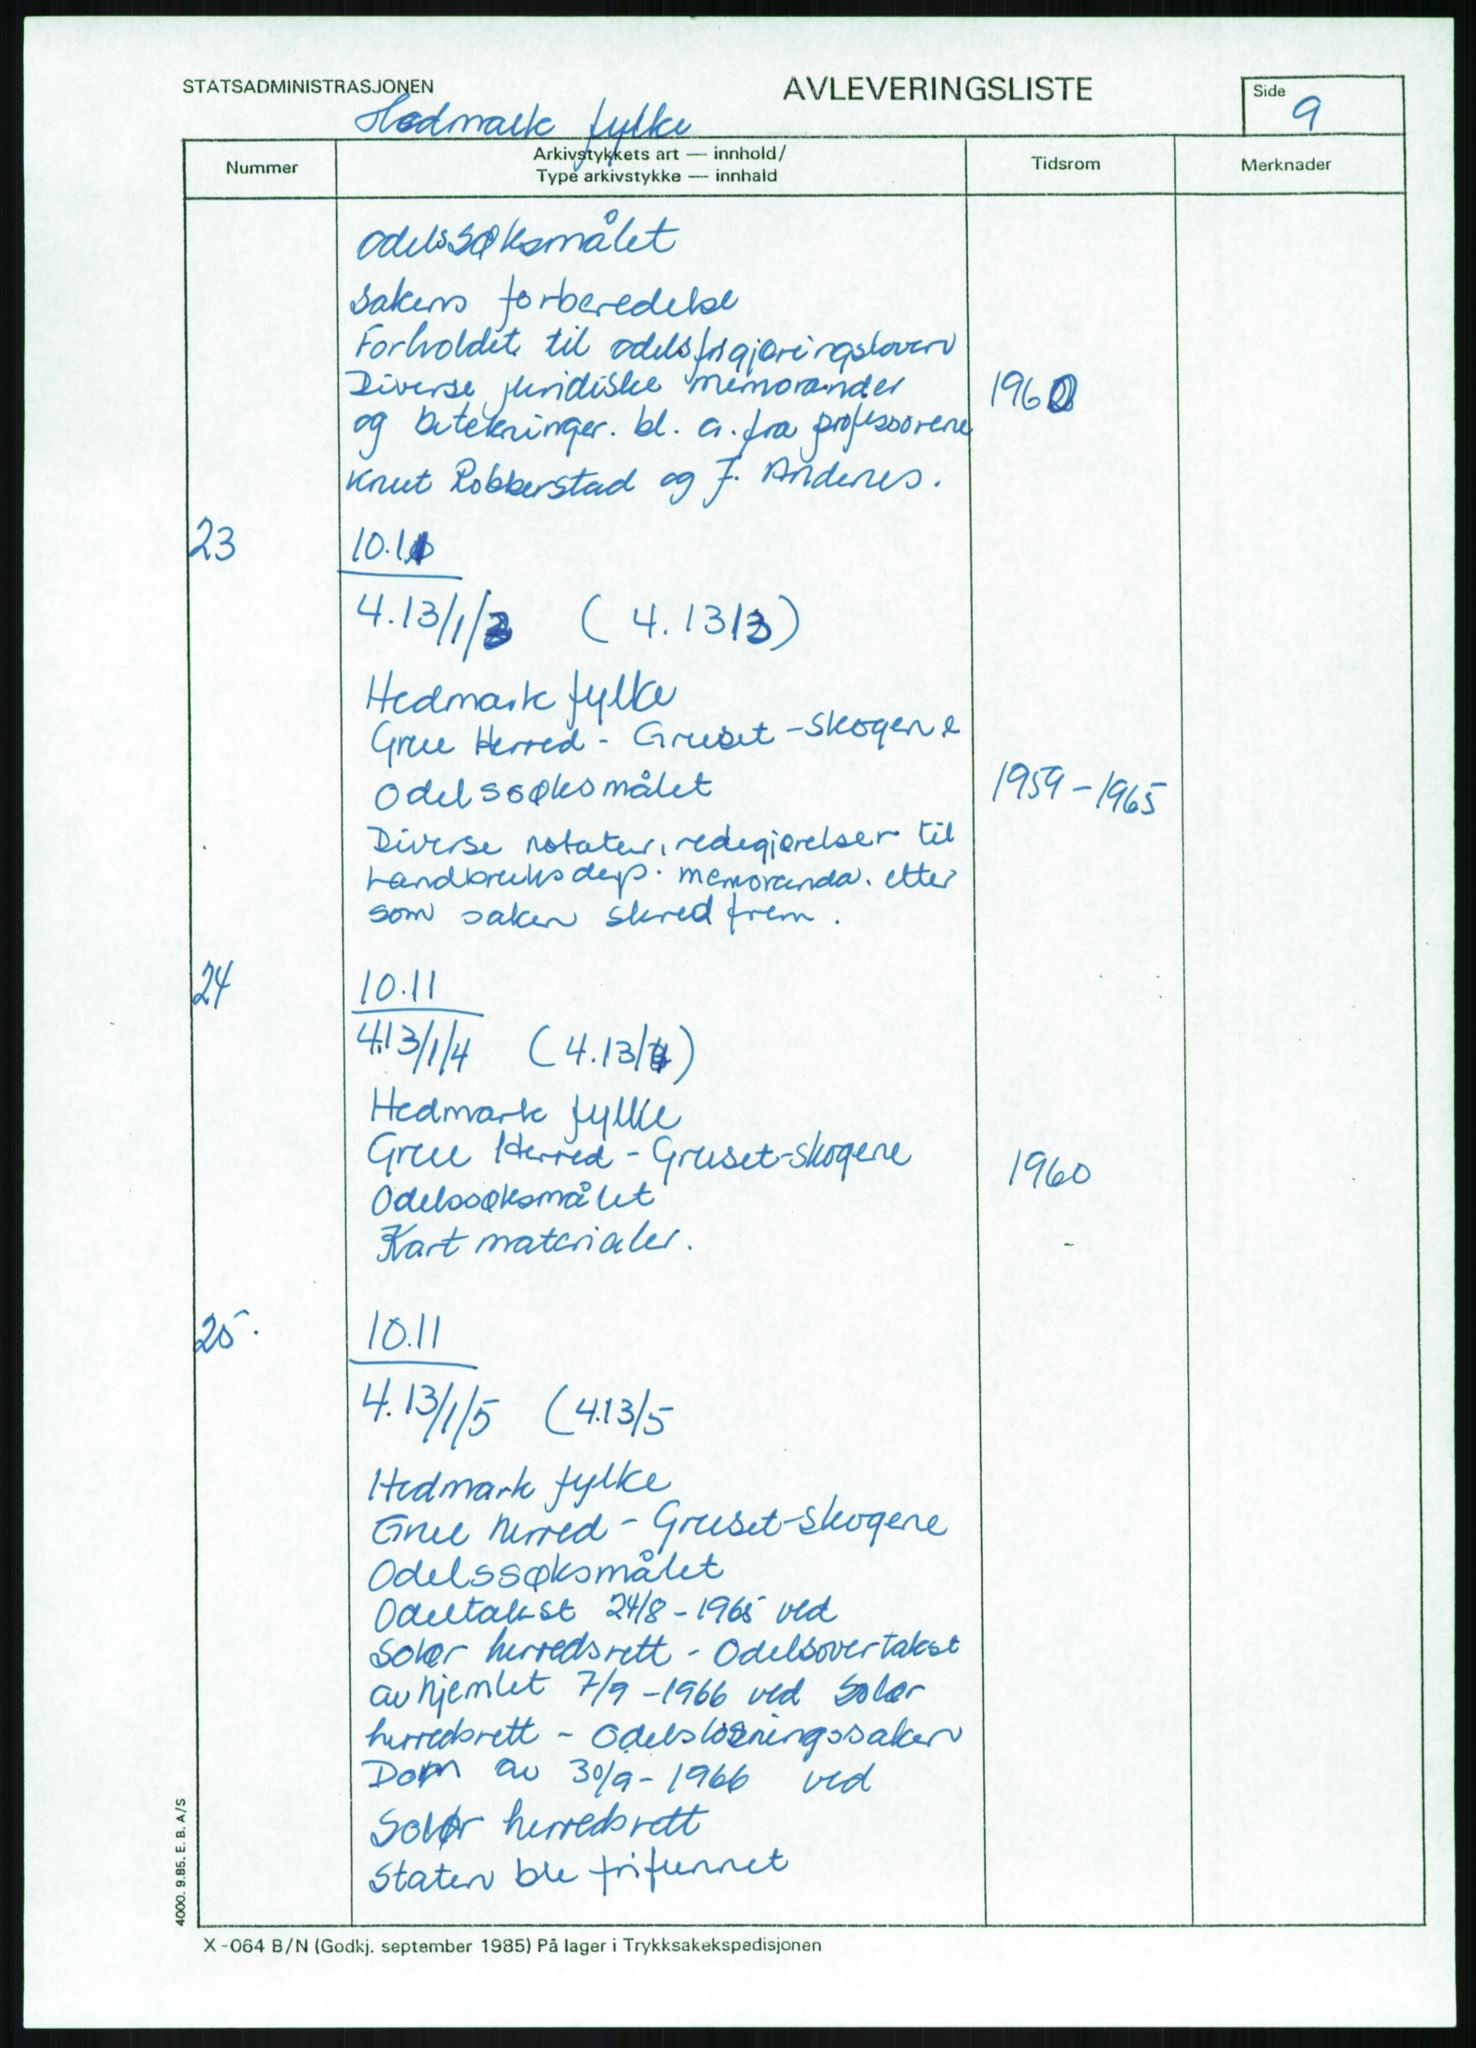 STATSADMINISTRASJONEN
AVLEVERINGSLISTE
Side
9
Hedmark fylke
Nummer
Arkivstykkets art — innhold/
Type arkivstykke — innhald
Tidsrom
Merknader
Odelssøksmålet
Sakens forberedelse
Forholdet til odelsfrigjøringsloven
Diverse juridiske memorander 1960
og betekninger. bl. a. fra professorene
Knut Robberstad og J. Andenes.
23 10.11
4.13/1/3 (4.13/3)
Hedmark fylke
Grue Herred - Gruset-skogene
Odelssøksmålet 1959-1965
Diverse notater, redegjørelser til
Landbruksdep. memoranda. etter
som saken skred frem.
24 10.11
4.13/1/4 (4.13/4)
Hedmark fylke
Grue Herred - Gruset-skogene 1960
Odelssøksmålet
Kart materialer.
25. 10.11
4.13/1/5 (4.13/5
Hedmark fylke
Grue herred - Gruset-skogene
Odelssøksmålet
Odeltakst 24/8-1965 ved
Solør herredsrett - Odelsovertakst
avhjemlet 7/9-1966 ved Solør
herredsrett - Odelsløsningssaken
Dom av 30/9-1966 ved
Solør herredsrett
Staten ble frifunnet
4000. 9.85. E. B. A/S
X-064 B/N (Godkj. september 1985) På lager i Trykksakekspedisjonen